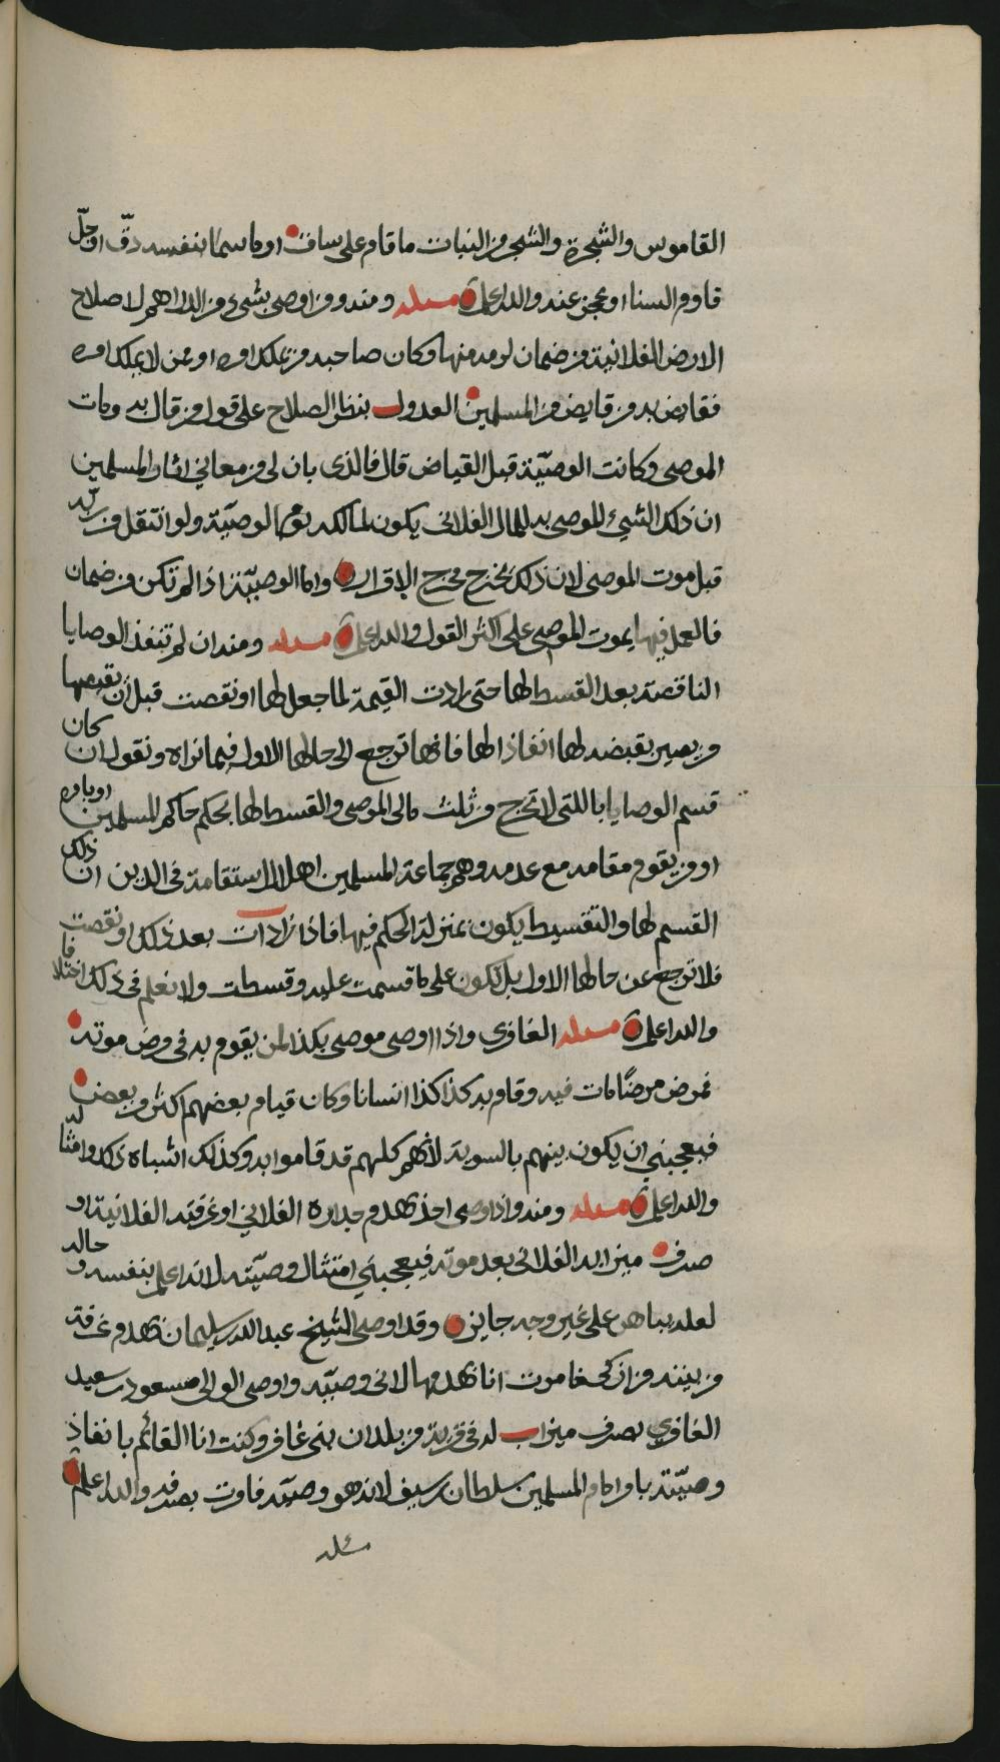 القاموس والشجرة والشجر من النبات ما قام على ساق او ما سما بنفسه دقّ او جلّ
قاوم الشتاء او عجز عنه والله اعلم مسئله ومنه ومن اوصى بشيء من الدراهم لاصلاح
الارض الفلانية من ضمان لزمه منها وكان صاحبه من يملك امره او ممن لا يملك امره
فقايض به من قايض من المسلمين العدول بنظر الصلاح على قول من قال به ومات
الموصي وكانت الوصيّة قبل القياض قال فالذي بان لي من معاني اثار المسلمين
ان ذلك الشيء الموصى به للمال الفلاني يكون لمالكه يوم الوصيّة ولو انتقل من ربّه
قبل موت الموصي لان ذلك يخرج مخرج الاقرار واما الوصيّة اذا لم تكن من ضمان
فالعمل فيها بموت الموصي على اكثر القول والله اعلم مسئله ومنه ان لم تنفذ الوصايا
الناقصة بعد القسط لها حتى زادت القيمة لما جعل لها او نقصت قبل ان يقبضها
من يصير بقبضه لها انفاذا لها فانها ترجع الى حالها الاول فيما نراه ونقول ان كان
قسم الوصايا اللتي لا تخرج من ثلث مال الموصي والقسط لها بحكم حاكم المسلمين او بامره
او من يقوم مقامه مع عدمه وهم جماعة المسلمين اهل الاستقامة في الدين ان ذلك
القسم لها والتقسيط يكون بمنزلة الحكم فيها فاذا زادات بعد ذلك او نقصت
فلا ترجع عن حالها الاول بل تكون على ما قسمت عليه وقسطت ولا نعلم في ذلك اختلافا
والله اعلم مسئله الغافري واذا اوصى موصي بكذا لمن يقوم به في مرض موته
فمرض مرضًا مات فيه وقام به كذا كذا انسانا وكان قيام بعضهم اكثر من بعض
فيعجبني ان يكون بينهم بالسوية لانهم كلهم قد قاموا به وكذلك اشباه ذلك وامثاله
والله اعلم مسئله ومنه واذا اوصى احد بهدم جداره الفلاني او غرفته الفلانية او
صرف ميزابه الفلاني بعد موته فيعجبني امتثال وصيّته لانه اعلم بنفسه وحاله
لعله بناهن على غير وجه جايز وقد اوصى الشيخ عبدالله بن سليمان بهدم غرفة
من بيته من ازكى فامرت انا بهدمها لاني وصيّه واوصى الوالي مسعود بن سعيد
الغافري بصرف ميزاب له في قرية من بلدان بني غافر وكنت انا القائم بانفاذ
وصيّته بامر امام المسلمين سلطان بن سيف لانه هو وصيّه فامرت بصرفه والله اعلم
مسئله